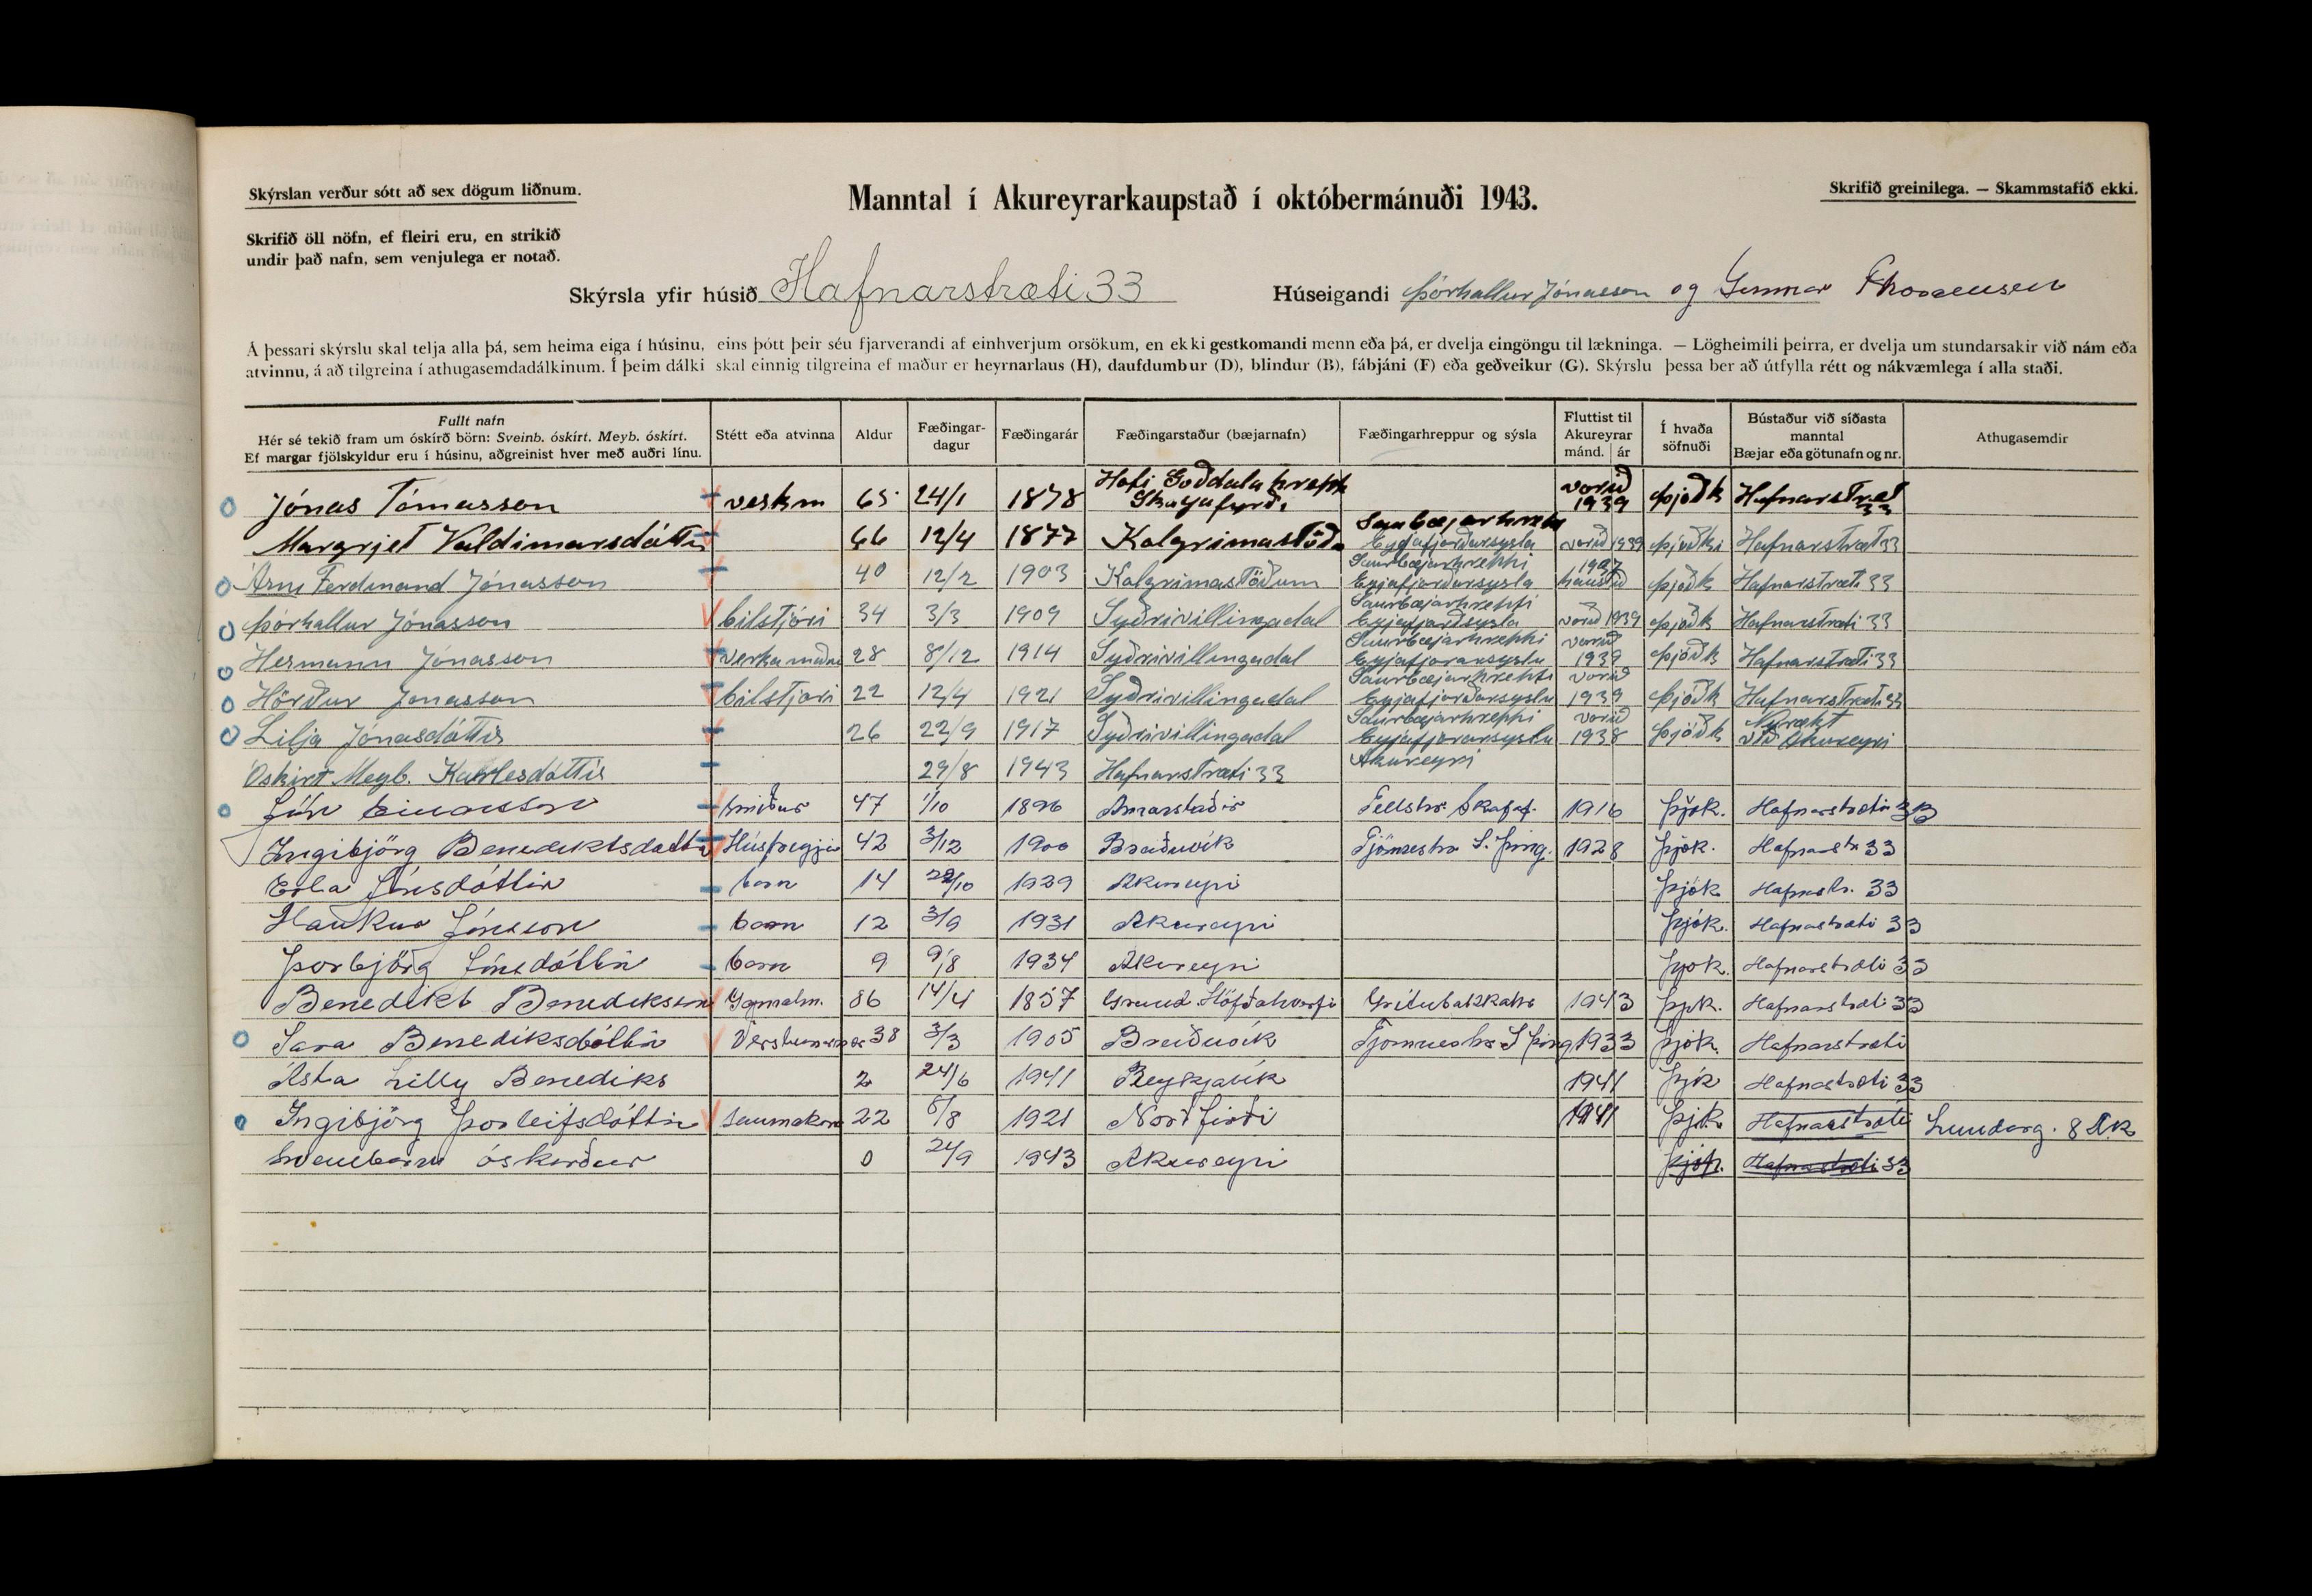 Skýrslan verður sótt að sex dögum liðnum.
Manntal í Akureyrarkaupstað í októbermánuði 1943.
Skrifið greinilega. — Skammstafið ekki.
Skrifið öll nöfn, ef fleiri eru, en strikið
undir það nafn, sem venjulega er notað.
Skýrsla yfir húsið Hafnarstræti 33 Húseigandi Þórhallur Jónasson og Gunnar Thorarensen
Á þessari skýrslu skal telja alla þá, sem heima eiga í húsinu, eins þótt þeir séu fjarverandi af einhverjum orsökum, en ekki gestkomandi menn eða þá, er dvelja eingöngu til lækninga. — Lögheimili þeirra, er dvelja um stundarsakir við nám eða
atvinnu, á að tilgreina í athugasemdadálkinum. Í þeim dálki skal einnig tilgreina ef maður er heyrnarlaus (H), daufdumbur (D), blindur (B), fábjáni (F) eða geðveikur (G). Skýrslu þessa ber að útfylla rétt og nákvæmlega í alla staði.
Fullt nafn
Hér sé tekið fram um óskírð börn: Sveinb. óskírt. Meyb. óskírt.
Ef margar fjölskyldur eru í húsinu, aðgreinist hver með auðri línu.
Stétt eða atvinna
Aldur
Fæðingar-
dagur
Fæðingarár
Fæðingarstaður (bæjarnafn)
Fæðingarhreppur og sýsla
Fluttist til
Akureyrar
mánd. ár
Í hvaða
söfnuði
Bústaður við síðasta
manntal
Bæjar eða götunafn og nr.
Athugasemdir
Jónas Tómasson verkm 65 24/1 1878 Hofi Goddalahrepp Skagafyrði vorið 1939 þjóðk Hafnarstræt 33
Margrjet Valdimarsdóttir 66 12/4 1877 Kolgrimastöð Saurbæjarhrepp Eyjafjarðarsysla vorið 1939 þjóðki Hafnarstræt 33
Árni Ferdinand Jónasson 40 12/2 1903 Kolgrimastöðum Saurbæjarhreppi Eyjafjarðarsysla 1937 haustið þjóðk Hafnarstræti 33
Þórhallur Jónasson bilstjóri 34 3/3 1909 Syðrivillingadal Saurbæjarhreppi Eyjafjarðsysla vorið 1939 þjóðk Hafnarstræti 33
Hermann Jónasson verkamaður 28 8/12 1914 Syðrivillingadal Saurbæjarhreppi Eyjafjorarsyslu vorið 1939 þjóðk Hafnarstræti 33
Hörður Jonasson bilstjori 22 12/4 1921 Syðrivillingadal Saurbæjarhreppi Eyjafjorðarsyslu vorið 1939 þjóðk Hafnarstræti 33
Lilja Jónasdóttir 26 22/9 1917 Syðrivillingadal Saurbæjarhreppi Eyjafjorarsyslu vorið 1938 þjóðk Nyrækt við Akureyri
Oskirt Meyb. Karlesdóttir 29/8 1943 Hafnarstræti 33 Akureyri
Jón Einarsson smiður 47 1/10 1896 Fellshr. Skagaf. 1916 Þjók. Hafnarstræti 33
Ingibjörg Benediktsdóttir Húsfreyja 42 3/12 1900 Breiðuvík Tjörneshr S. Þing. 1928 Þjók. Hafnarstr 33
Erla Jónsdóttir barn 14 22/10 1929 Akureyri Þjók Hafnarstr. 33
Haukur Jónsson barn 12 3/9 1931 Akureyri Þjók. Hafnarstræti 33
Þorbjörg Jónsdóttir barn 9 9/8 1934 Akureyri Þjok. Hafnarstræti 33
Benedikt Benediktsson Gamalm. 86 14/4 1857 Grund Höfðahverfi Grítubakkahr 1943 Þjók. Hafnarstræti 33
Sara Benediksdóttir 38 3/3 1905 Breiðuvík Tjörneshr S Þing 1933 Þjók. Hafnarstræti
Ásta Lilly Benediks 2 24/6 1941 Reykjavík 1941 Þjók Hafnarstræti 33
Ingibjörg Þorleifsdóttir Saumakona 22 5/8 1921 Norðfirði 1941 Þjók Hafnarstræti Lundarg. 8 Ak
Sveinbarn óskirður 0 24/9 1943 Akureyri Þjók. Hafnarstræti 33